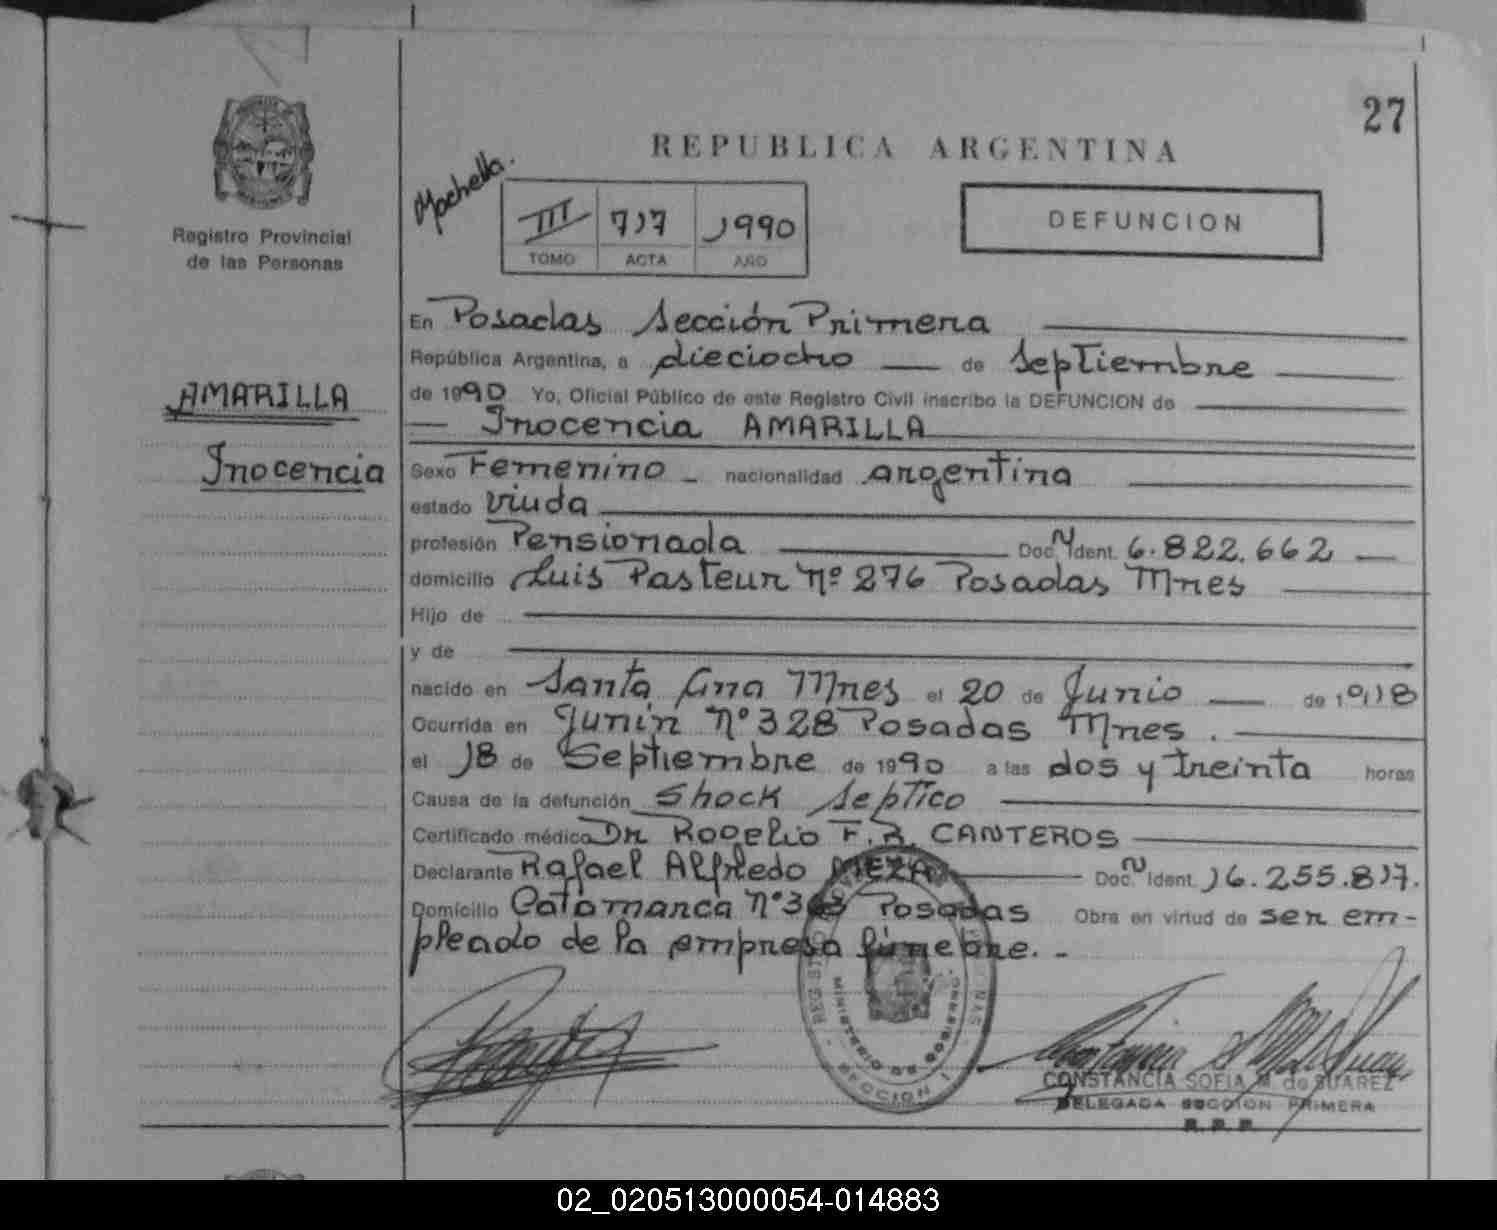 27
REPUBLICA ARGENTINA
Registro Provincial
de las Personas
III 717 1990
TOMO ACTA AÑO
DEFUNCION
AMARILLA
Inocencia
En Posadas Sección Primera
República Argentina, a dieciocho de Septiembre
de 1990 Yo, Oficial Público de este Registro Civil inscribo la DEFUNCION de
Inocencia AMARILLA
Sexo Femenino nacionalidad argentina
estado viuda
profesión Pensionada Doc. N Ident. 6.822.662
domicilio Luis Pasteur Nº 276 Posadas Mnes
Hijo de
y de
nacido en Santa Ana Mnes el 20 de Junio de 1918
Ocurrida en Junín Nº 328 Posadas Mnes.
el 18 de Septiembre de 1990 a las dos y treinta horas
Causa de la defunción Shock Septico
Certificado médico Dr Rogelio F. R. CANTEROS
Declarante Rafael Alfredo MEZA Doc. N Ident. 16.255.817.
Domicilio Catamarca Nº Posadas Obra en virtud de ser em-
pleado de la empresa fúnebre.
MINISTERIO DE GOBIERNO
SECCION 1
CONSTANCIA SOFIA M. de SUAREZ
DELEGADA SECCION PRIMERA
R.P.P.
02_020513000054-014883